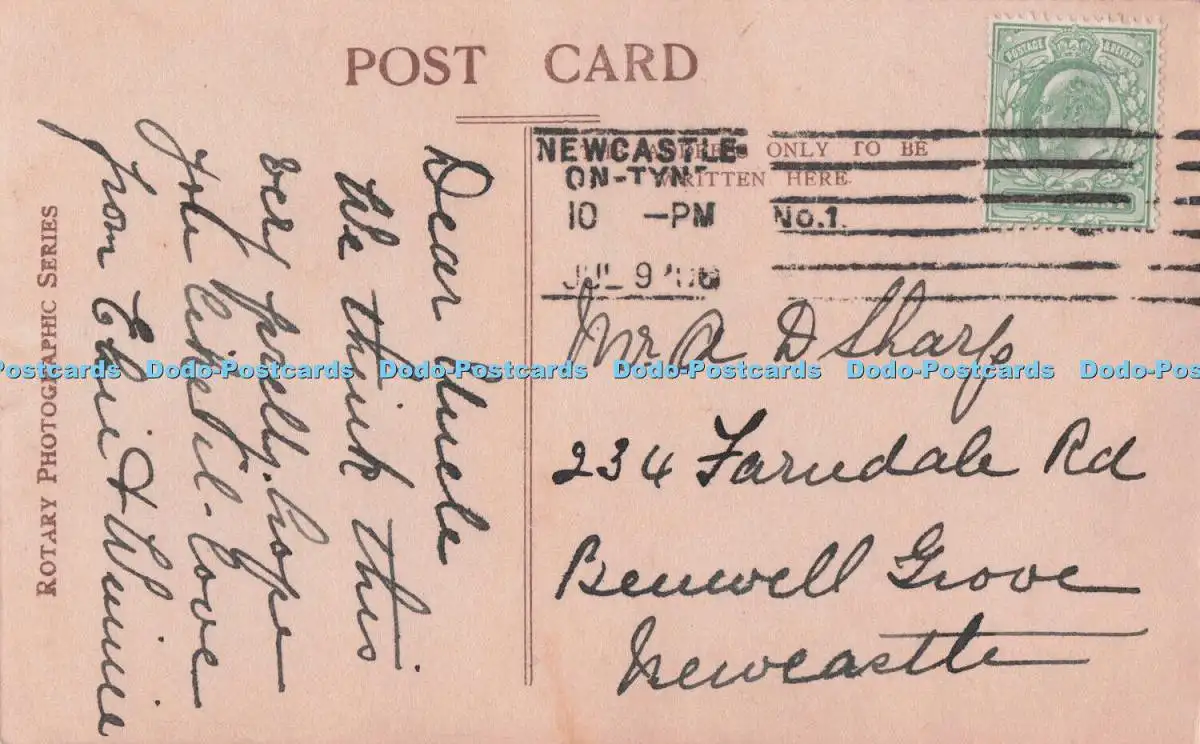 POST CARD
ONLY TO BE
WRITTEN HERE
POSTAGE & REVENUE
NEWCASTLE-
ON-TYNE
10 -PM No.1.
JUL 9
Dear Uncle
We think this
very pretty. hope
you like it. Love
from Elsie & Winnie
ROTARY PHOTOGRAPHIC SERIES
Mr A D Sharp
234 Farndale Rd
Benwell Grove
Newcastle
Dodo-Postcards Dodo-Postcards Dodo-Postcards Dodo-Postcards Dodo-Postcards